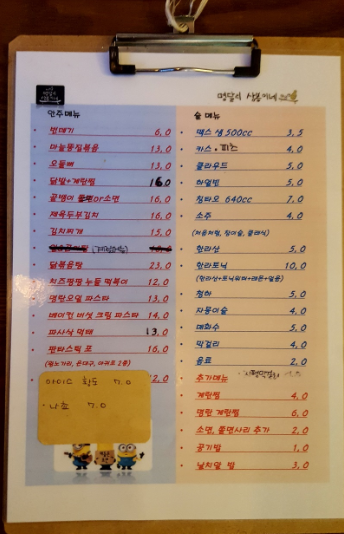 명달리 삼봉이네
안주메뉴
번데기 6,0
마늘똥집볶음 13,0
오돌뼈 13,0
닭발+계란찜 16,0
골뱅이 쫄면or소면 16,0
제육두부김치 16,0
김치찌개 15,0
닭볶음탕 23,0
치즈퐁퐁 누들 떡볶이 12,0
명란오일 파스타 13,0
베이컨 버섯 크림 파스타 14,0
파사삭 먹태 13,0
판타스틱 포 16,0
2,0
아이스 황도 7.0
나쵸 7.0
술 메뉴
맥스 생 500cc 3,5
카스·피츠 4,0
클라우드 5,0
하얼빈 5,0
칭타오 640cc 7,0
소주 4,0
(처음처럼, 참이슬, 클래식)
한라산 5,0
한라토닉 10,0
(한라산+토닉워터+레몬+얼음)
청하 5,0
자몽이슬 4,0
매화수 5,0
막걸리 4,0
음료 2,0
추가메뉴
계란찜 4,0
명란 계란찜 6,0
소면, 쫄면사리 추가 2,0
공기밥 1,0
날치알 밥 3,0